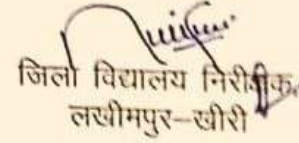 जिला विद्यालय निरीक्षक,
लखीमपुर–खीरी